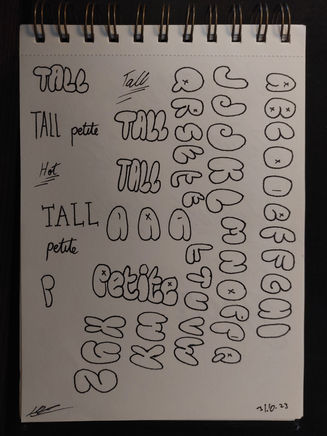 TALL Tall
TALL petite TALL
Hot TALL
TALL
petite
A A A
P
Petite
A
B
C
D
D
E
F
F
G
H
I
J
J
J
K
L
M
N
O
P
Q
R
S
T
U
V
W
X
Y
Z
31.10.23